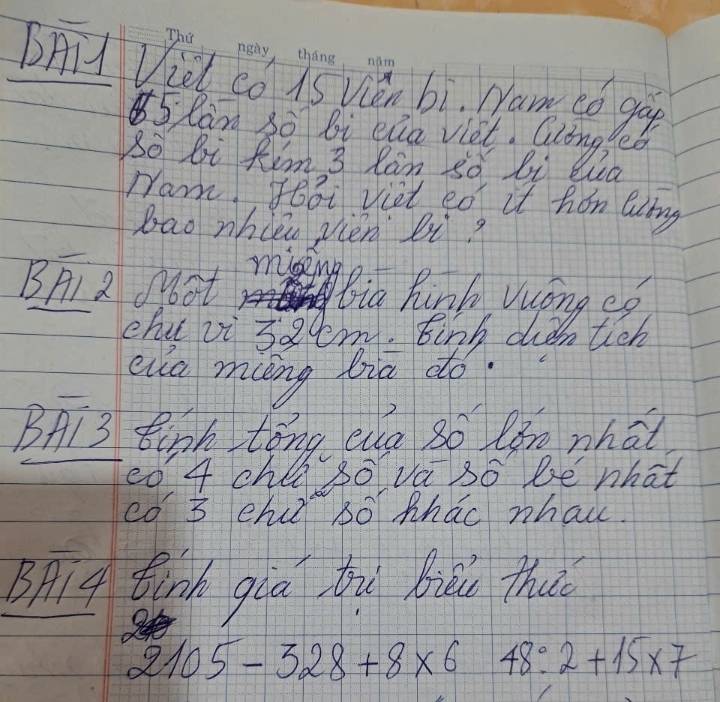 Thứ ngày tháng năm
BÀI 1 Việt có 15 viên bi. Nam có gấp
5 lần số bi của việt. Cường có
số bi kém 3 lần số bi của
Nam. Hỏi việt có ít hơn Cường
bao nhiêu viên bi ?
miếng
BÀI 2 Một bìa hình vuông có
chu vi 32 cm. Tính diện tích
của miếng bìa đó.
BÀI 3 Tính tổng của số lớn nhất
có 4 chữ số và số bé nhất
có 3 chữ số khác nhau.
BÀI 4 Tính giá trị biểu thức
2105 - 328 + 8 x 6 48 : 2 + 15 x 7